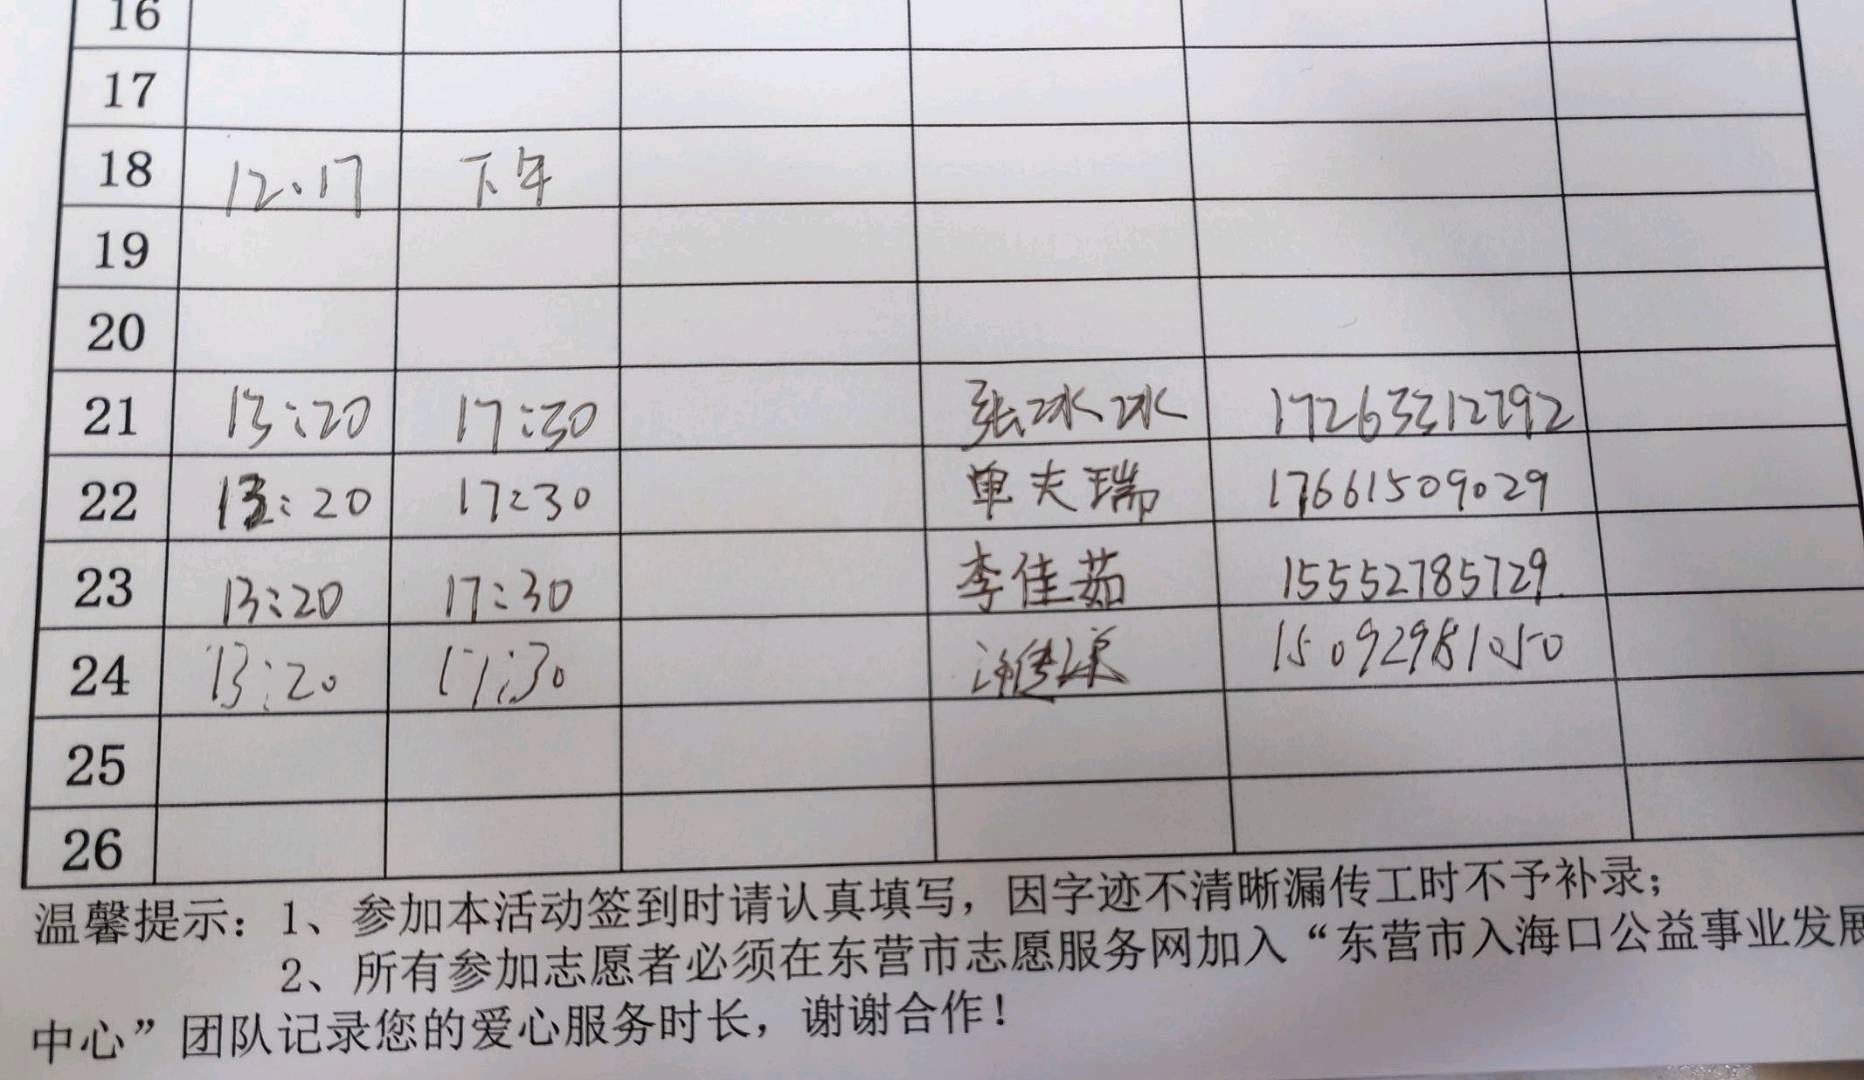 16
17
18 12.17 下午
19
20
21 13:20 17:30 张冰冰 17263312792
22 13:20 17:30 单夫瑞 17661509029
23 13:20 17:30 李佳茹 15552785729
24 13:20 17:30 15092981050
25
26
温馨提示：1、参加本活动签到时请认真填写，因字迹不清晰漏传工时不予补录；
2、所有参加志愿者必须在东营市志愿服务网加入“东营市入海口公益事业发展
中心”团队记录您的爱心服务时长，谢谢合作！